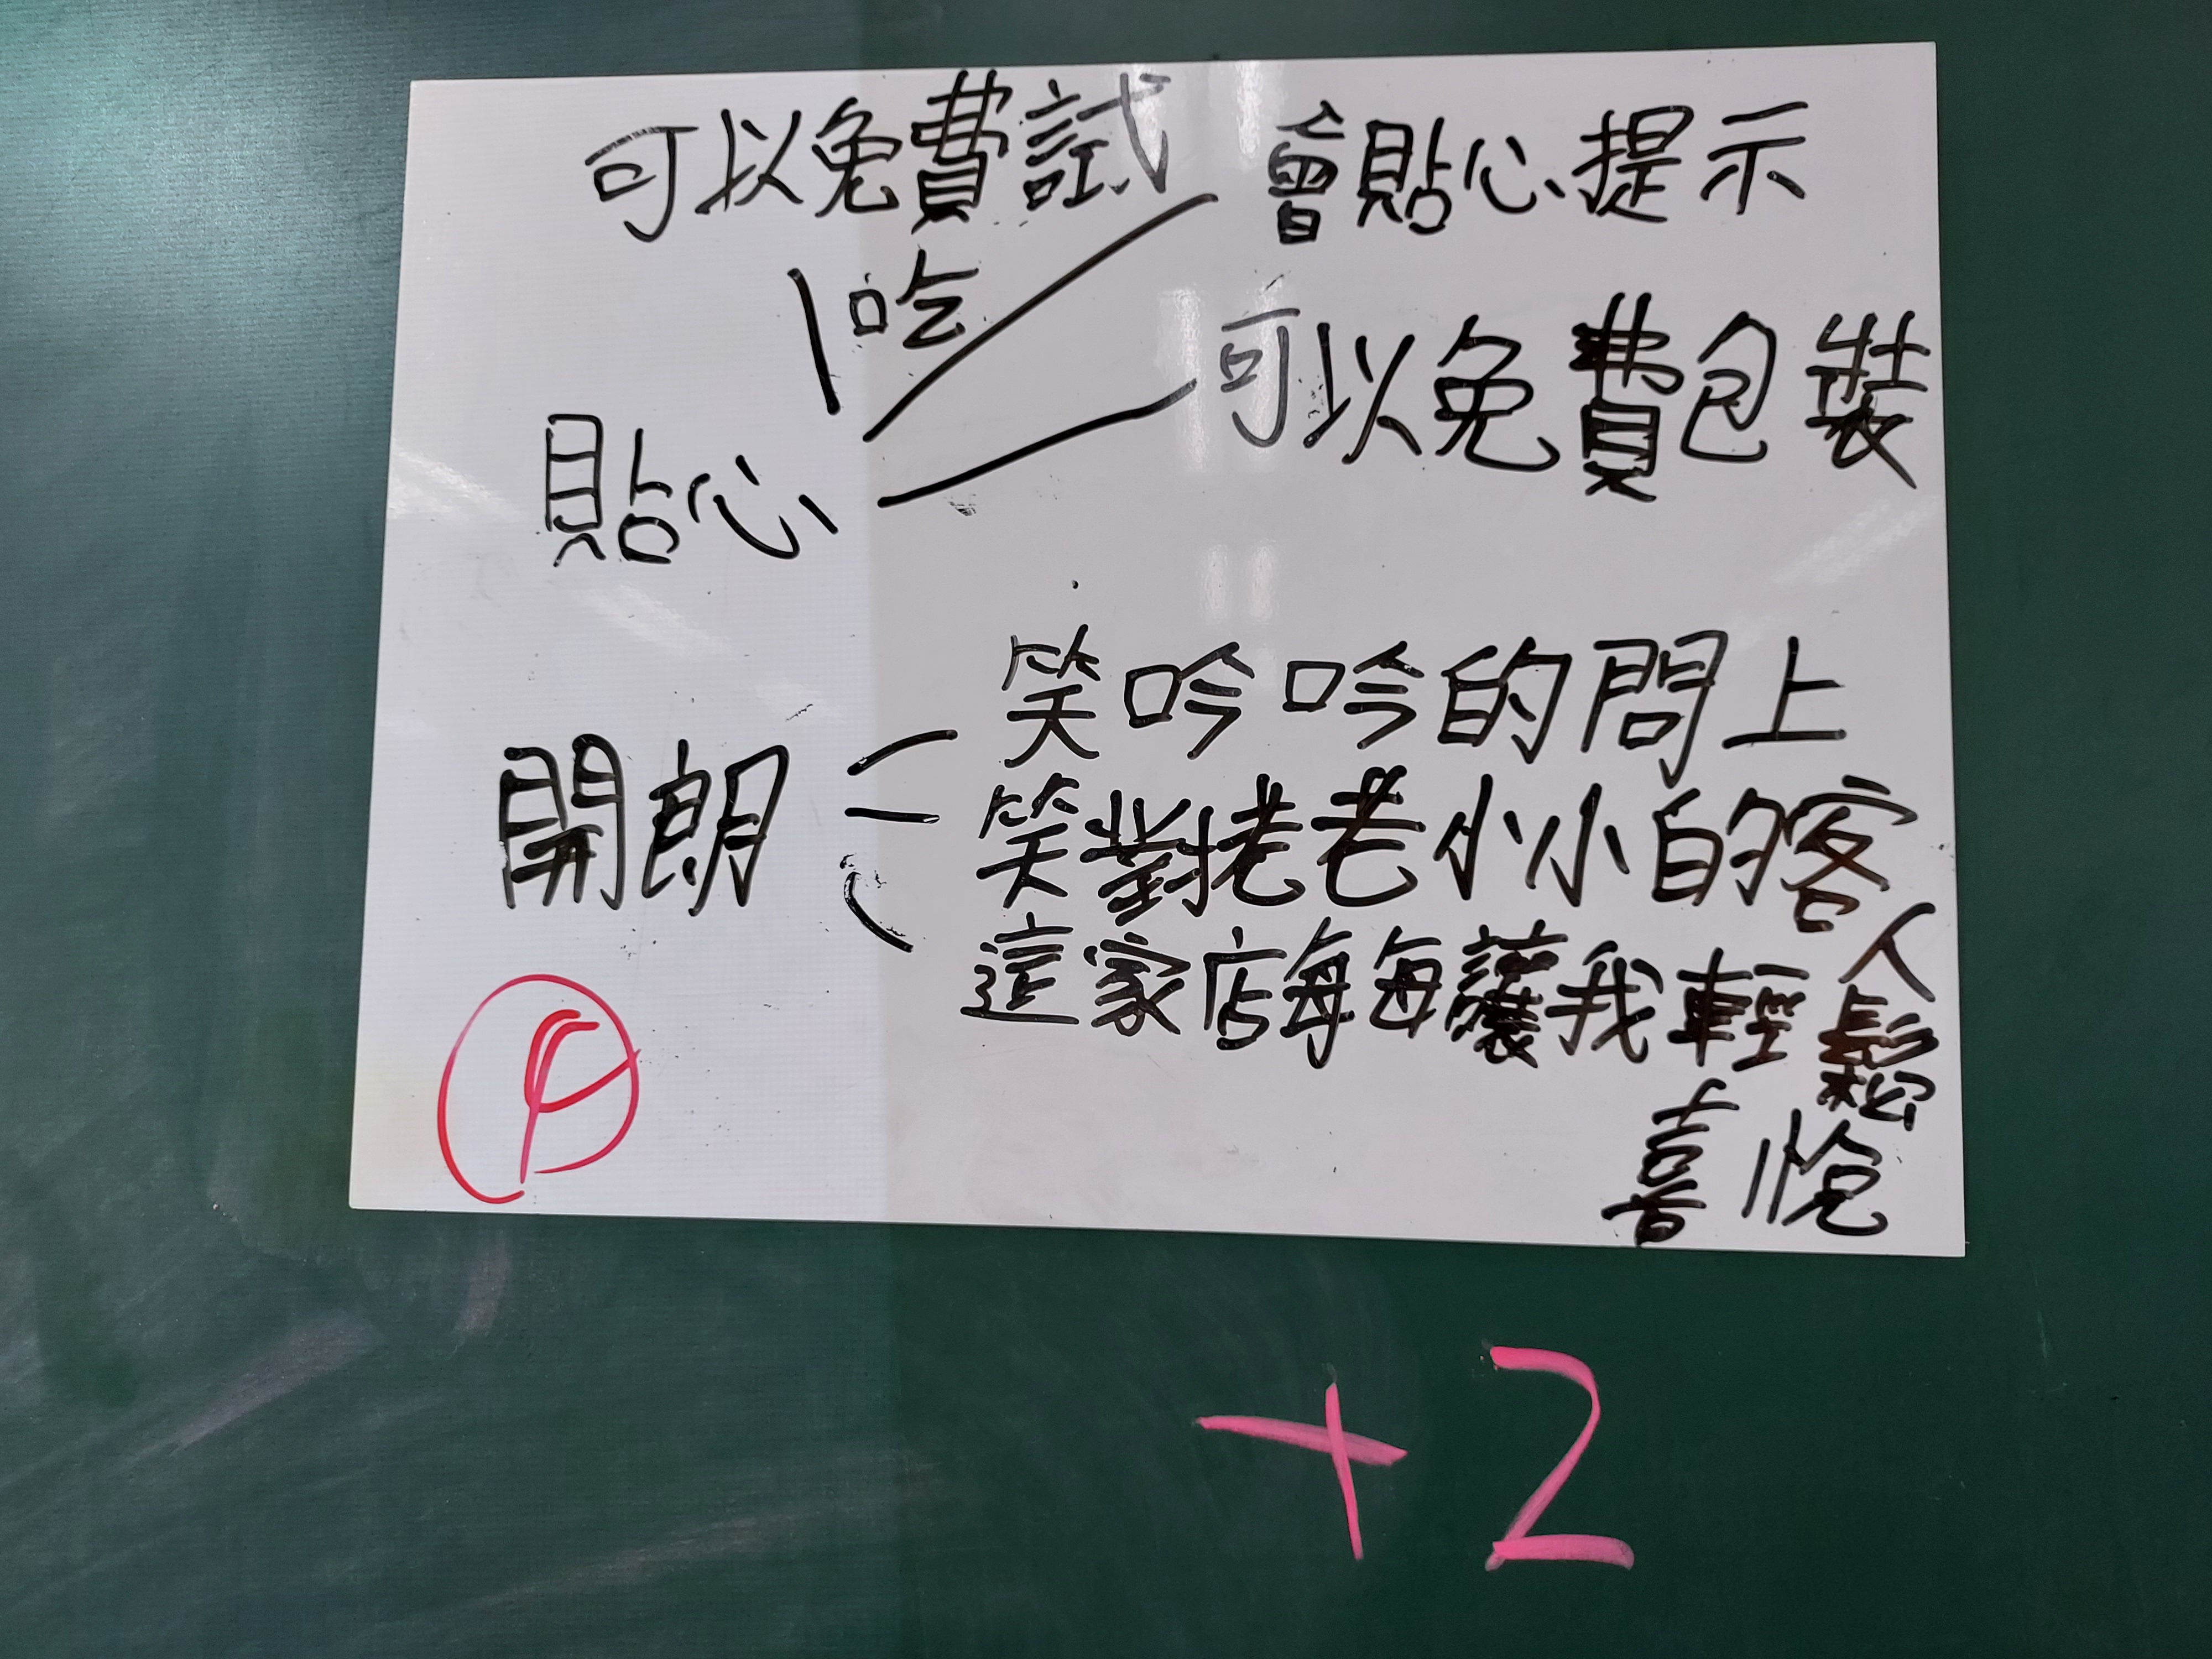 可以免費試
吃
會貼心提示
可以免費包裝
貼心
開朗
笑吟吟的問上
笑對老老小小的客
人
這家店每每讓我輕鬆
喜悅
+2